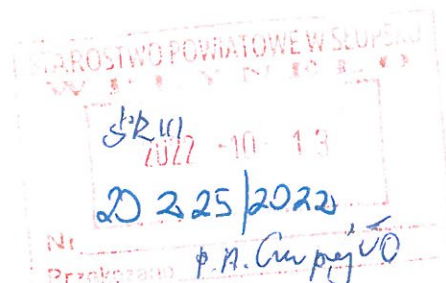 STAROSTWO POWIATOWE W SŁUPSKU
WPŁYNĘŁO
ŚR III
2022 -10- 13
20 225/2022
Nr
Przekazano P. A.